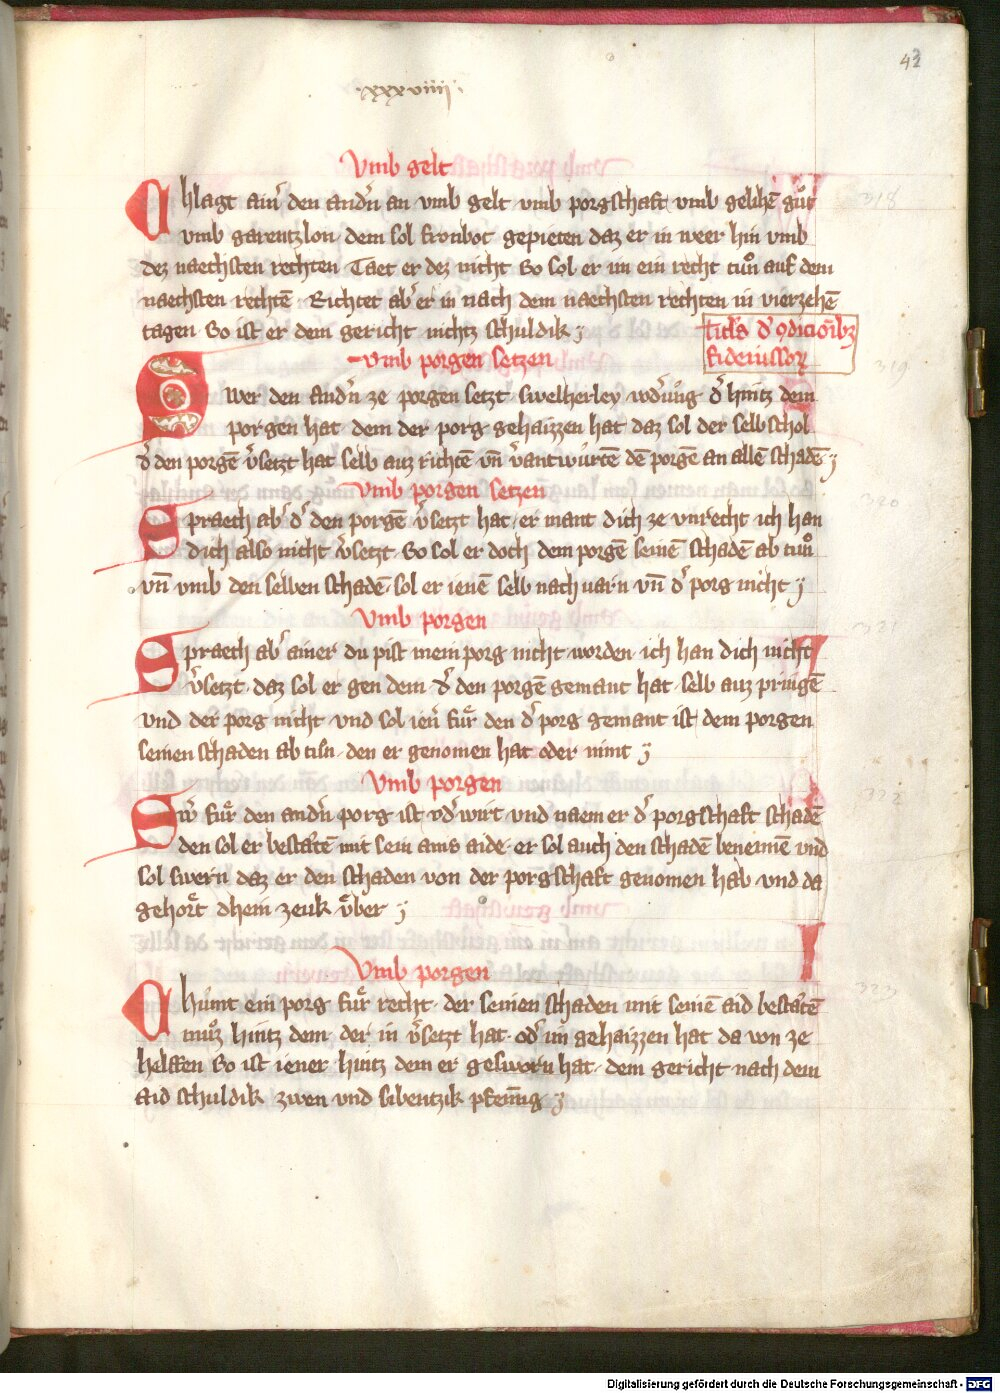 42
·xxxviiij·
Vmb gelt
Chlagt ainͬ den andͬn an vmb gelt vmb porgschaft vmb gelihē guͦt
vmb garentzlon dem sol fronbot gepieten daz er in weer hin vmb
dez naechsten rechten Taet er dez nicht So sol er im ein recht tuͦn auf dem
naechsten rechtē · Richtet abͬ er in nach dem naechsten rechten in vierzehē
tagen So ist er dem gericht nichtz schuldik
titls dͬ ꝯdicioībꝫ
fideiussoꝝ
vmb porgen setzen
Swer den Andͬn ze porgen setzt swelherley wdͬuͦng dͬ hintz dem
porgen hat dem der porg gehaizzen hat daz sol der selbschol
dͬ den porgē vͬsetzt hat selb auz richtē vn̄ vͬantwürtē dē porgē an allē schadē
Vmb porgen setzen
Spraech abͬ dͬ den porgē vͬsetzt hat · er mant dich ze vnrecht ich han
dich also nicht vͬsetzt · So sol er doch dem porgē seinē schadē ab tuͦn
vn̄ vmb den selben schadē · sol er ienē selb nach uarn vn̄ dͬ porg nicht
Vmb porgen
Spraech abͬ ainer du pist mein porg nicht worden ich han dich nicht
vͬsetzt · daz sol er gen dem dͬ den porgē gemant hat selb auz pringē
vnd der porg nicht vnd sol ienͬ für den dͬ porg gemant ist dem porgen
seinen schaden ab tuͦn · den er genomen hat oder nimt
Vmb porgen
Swͬ für den andͬn porg ist odͬ wirt vnd naem er dͬ porgschaft schadē
den sol er bestaͤtē mit sein ains aide · er sol auch den schadē benennē vnd
sol swern daz er den schaden von der porgschaft genomen hab vnd da
gehoͤrt dhein zeuk vͤber
Vmb porgen
Chuͤmt ein porg für recht · der seinen schaden mit seinē aid bestaͤtē
muͦz hintz dem der in vͬsetzt hat · odͬ im gehaizzen hat da von ze
helffen So ist iener hintz dem er gesworn hat · dem gericht nach dem
aid schuldik zwen vnd sibentzik pfenn̄ig
318
319
320
321
322
323
Digitalisierung gefördert durch die Deutsche Forschungsgemeinschaft - DFG